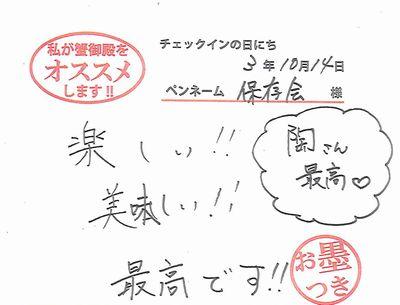 私が蟹御殿を
オススメ
します!!
チェックインの日にち
3年10月14日
ペンネーム 保存会 様
楽しい!!
陶さん
最高♡
美味しい!!
最高です!!
お墨
つき